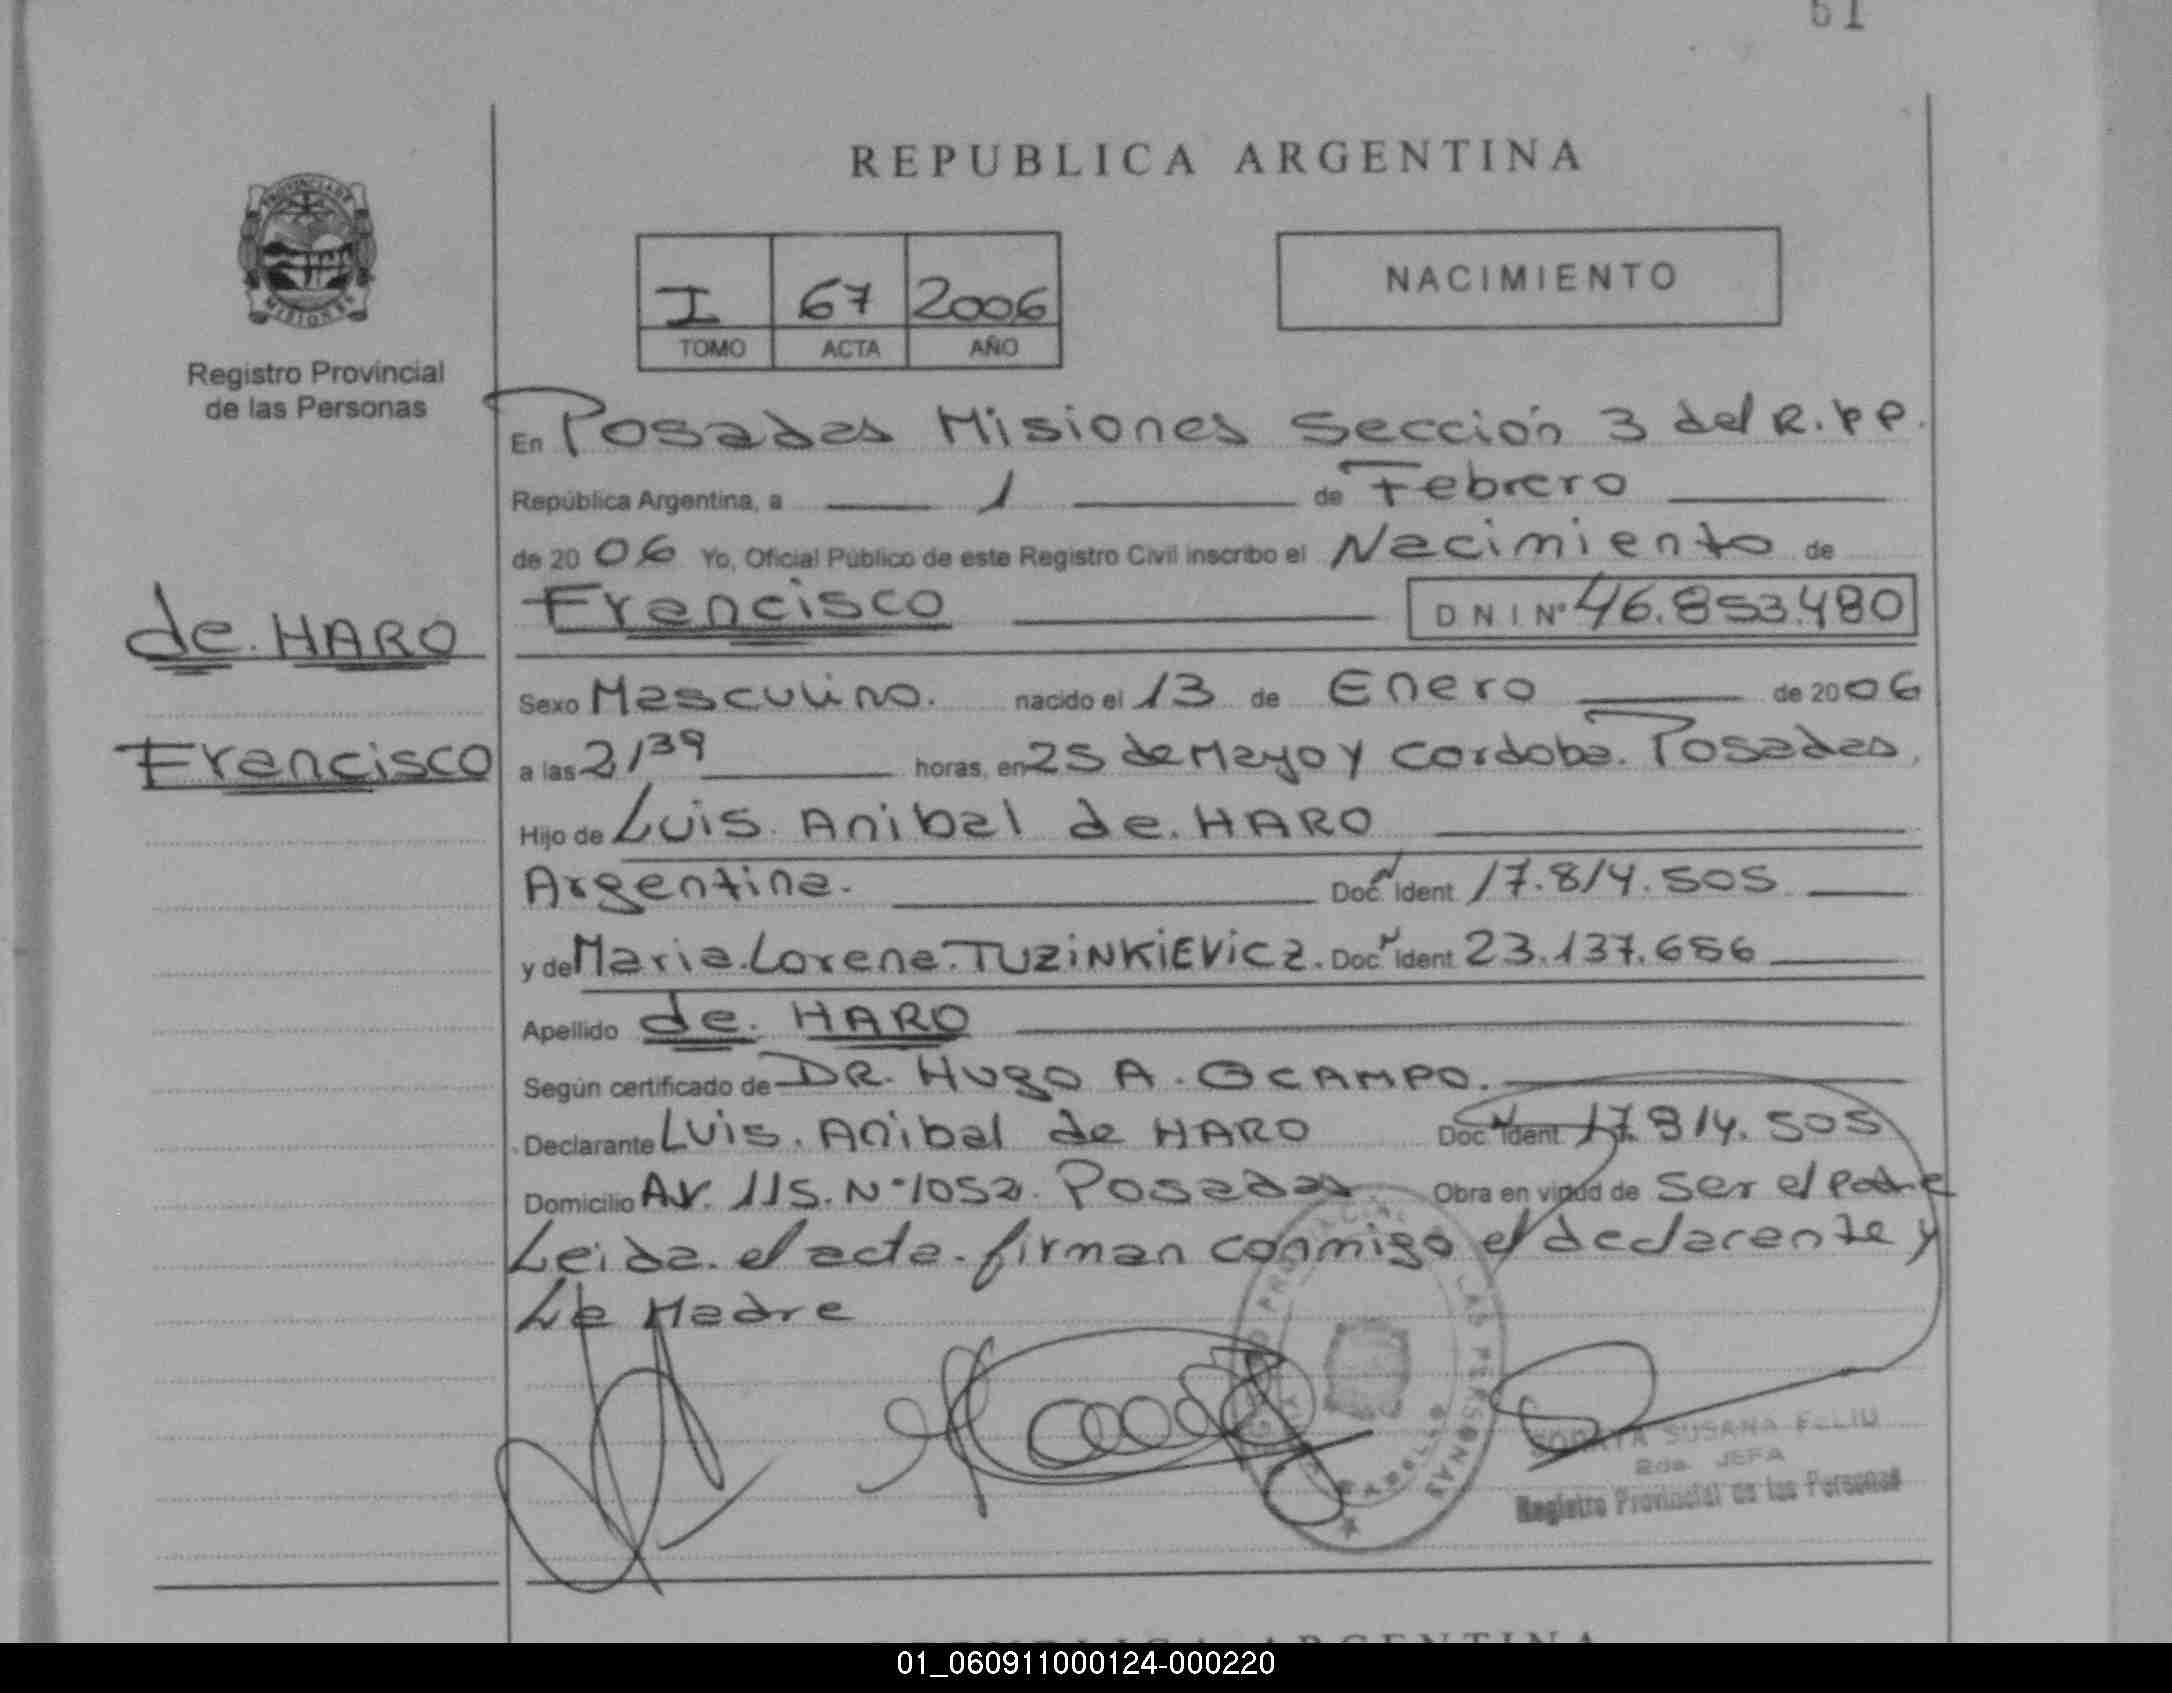 61
REPUBLICA ARGENTINA
PROVINCIA DE
MISIONES
Registro Provincial
de las Personas
I 67 2006
TOMO ACTA AÑO
NACIMIENTO
En Posadas Misiones Sección 3 del R.P.P.
República Argentina, a 1 de Febrero
de 2006 Yo, Oficial Público de este Registro Civil inscribo el Nacimiento de
Francisco DNI Nº 46.853.480
de HARO
Francisco
Sexo Masculino. nacido el 13 de Enero de 2006
a las 2,39 horas, en 25 de Mayo y Cordoba. Posadas.
Hijo de Luis Anibal de HARO
Argentina. Doc. Ident 17.814.505
y de Maria Lorena TUZINKIEVICZ. Doc. Ident 23.137.686
Apellido de HARO
Según certificado de DR. Hugo A. OCAMPO.
Declarante Luis Anibal de HARO Doc. Ident 17.814.505
Domicilio Av. 115. Nº 1052. Posadas Obra en virtud de ser el Padre
Leida el acta firman conmigo el declarante y
La Madre
LAS PERSONAS
SUSANA FELIU
2da. JEFA
Registro Provincial de las Personas
REPUBLICA ARGENTINA
01_060911000124-000220